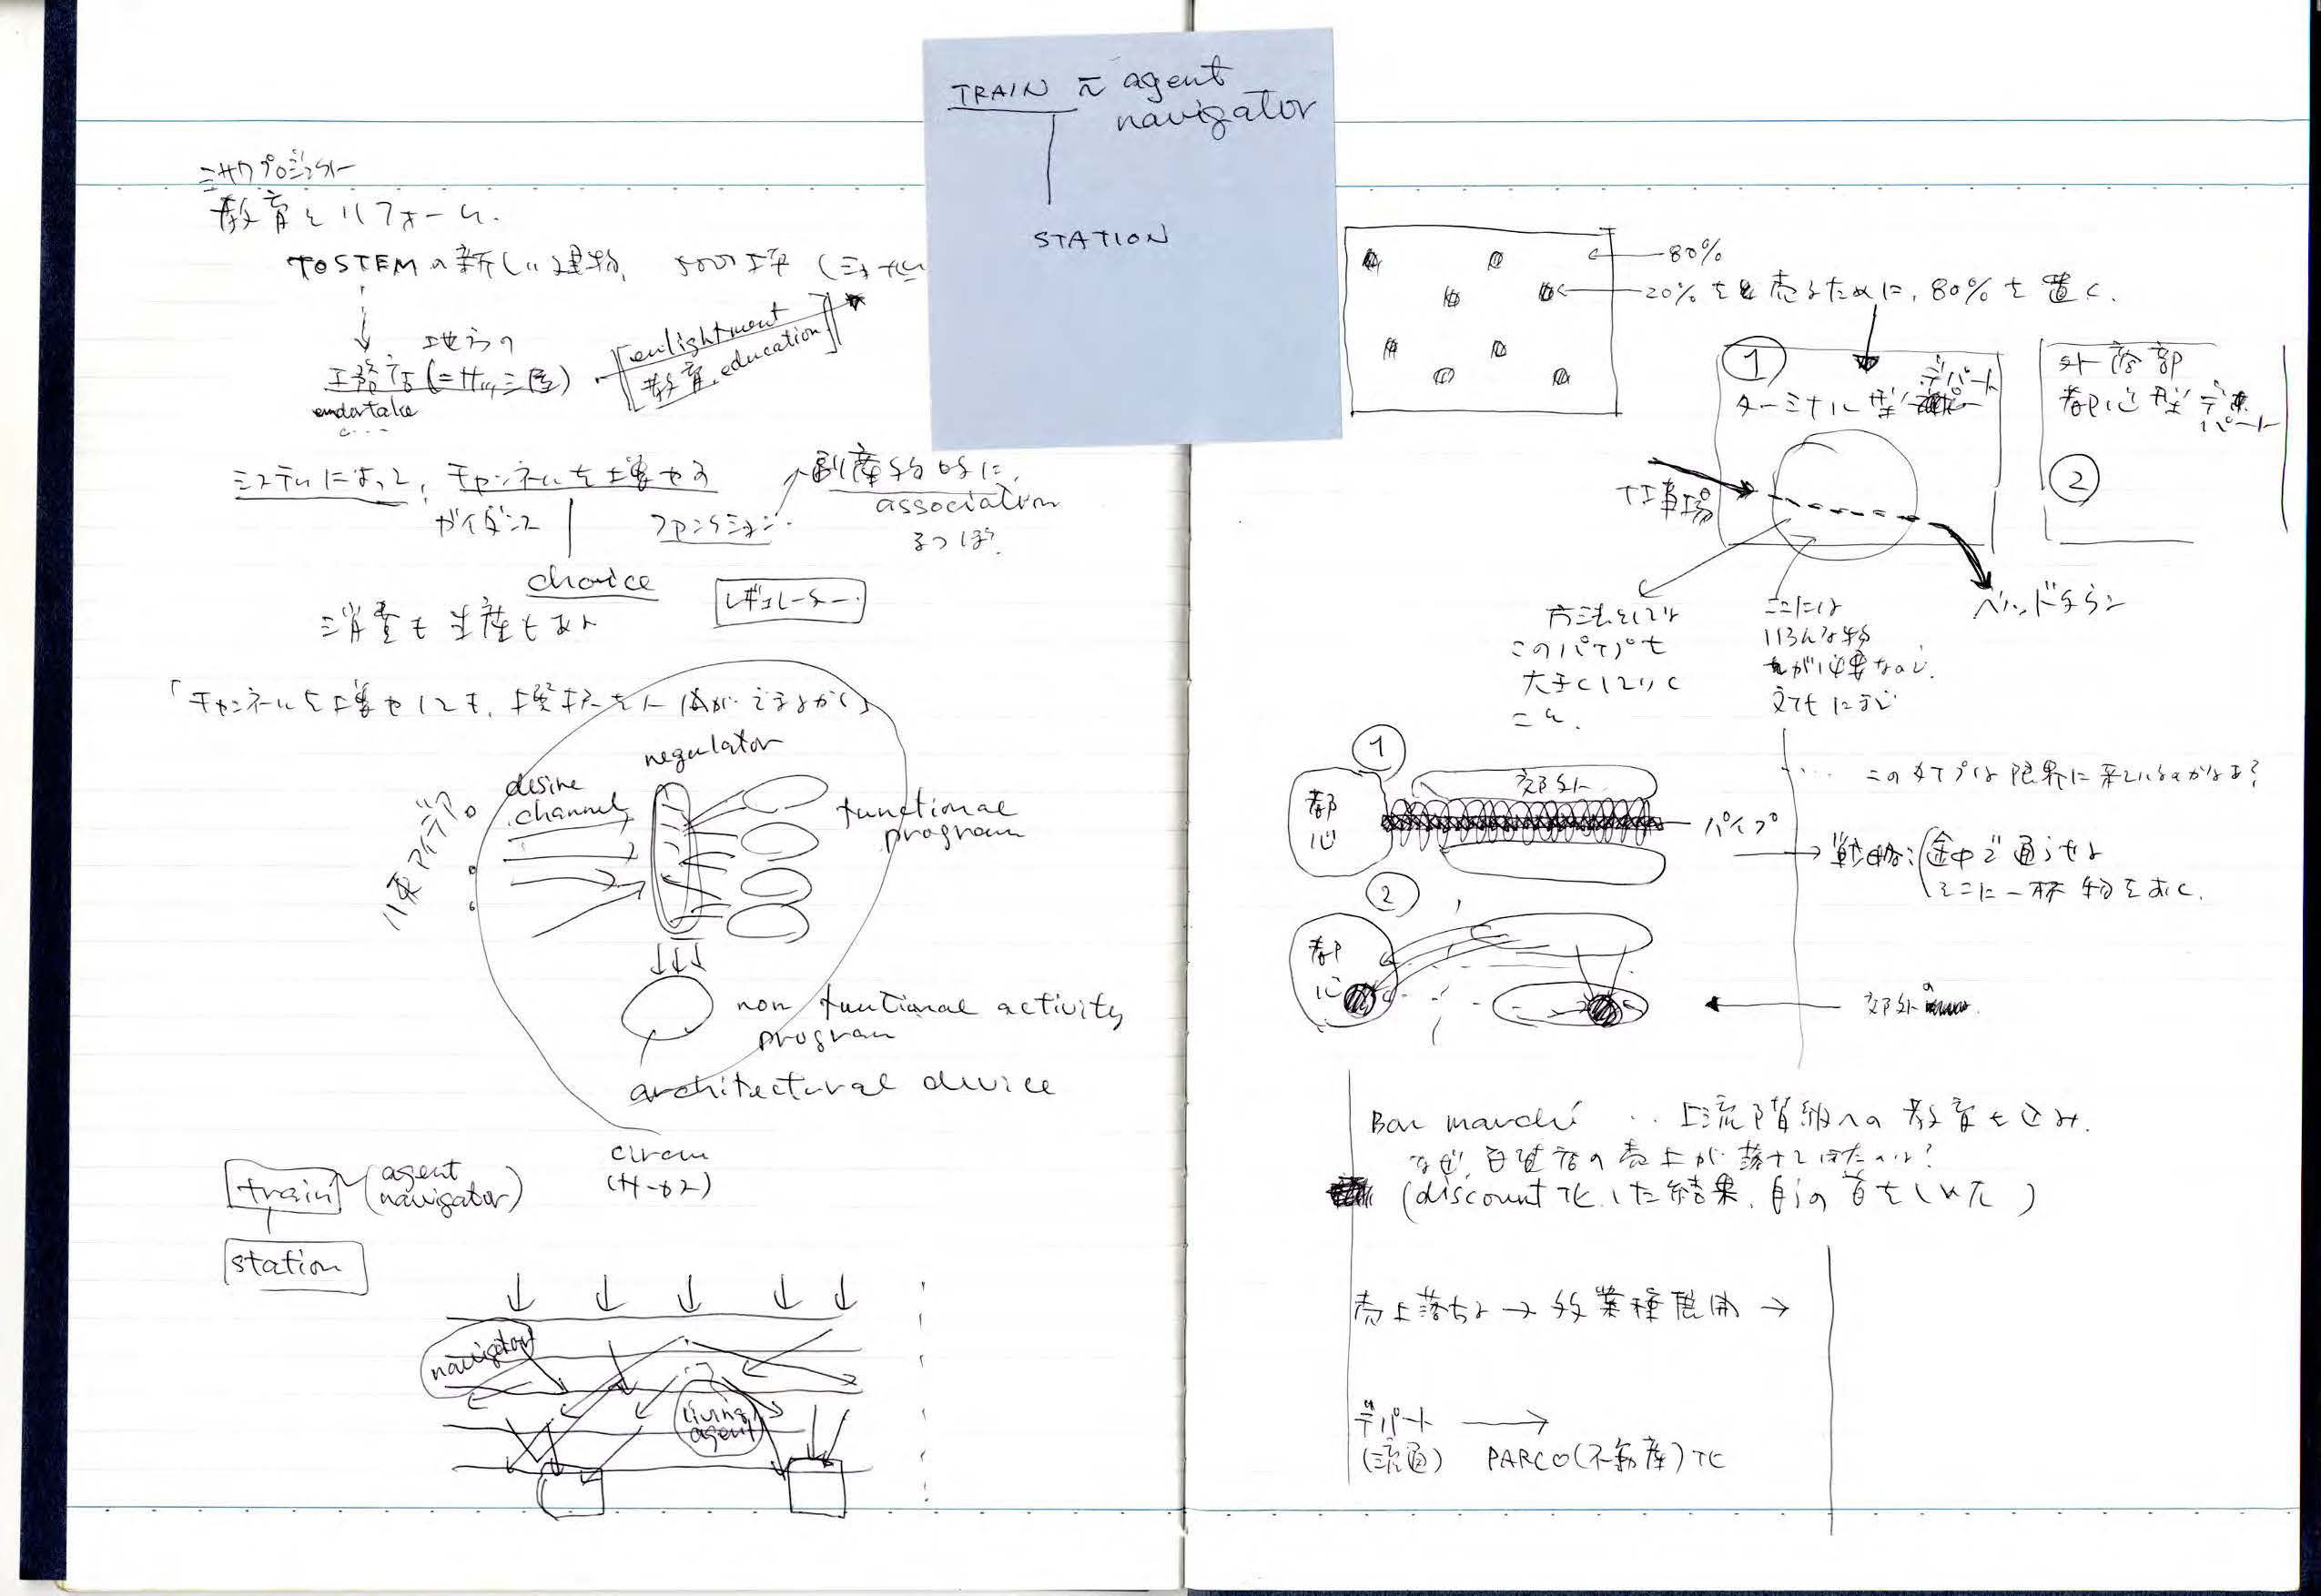 TRAIN ≈ agent
navigator
STATION
ミサワプロジェクト
教育とリフォーム.
TOSTEMの新しい建物,
地方の
工務店(=サッシ屋)
undertake
enlightment
教育, education
システムによって, チャンネルを増やす
副産物的に,
association
るつぼ?
ガイダンス
ファンクション.
choice
レギュレーター.
消費も生産も
「チャンネルを増やしても,
desire
channel
regulator
functional
program
non functional activity
program
architectural device
circum
(サーカス)
train
(agent
navigator)
station
navigator
living
agent
80%
20%を売るために, 80%を置く.
①
ターミナル型
デパート
外
都心型デ
パート
②
仕事場
ベッドタウン
方法としては
このパイプを
大きくしていく
こと.
ここには
いろんな物
が必要なので.
①
都心
郊外
パイプ
このタイプは限界に来ているのかなぁ?
戦略: 途中で通らせる
そこに一杯物をおく.
②
都心
郊外
Bon marché ‥ 上流階級への教育も込み.
なぜ, 百貨店の売上が落ちてきたのか?
(discount化した結果, 自分の首をしめた)
売上落ちる → 多業種展開 →
デパート →
(流通) PARCO(不動産)化